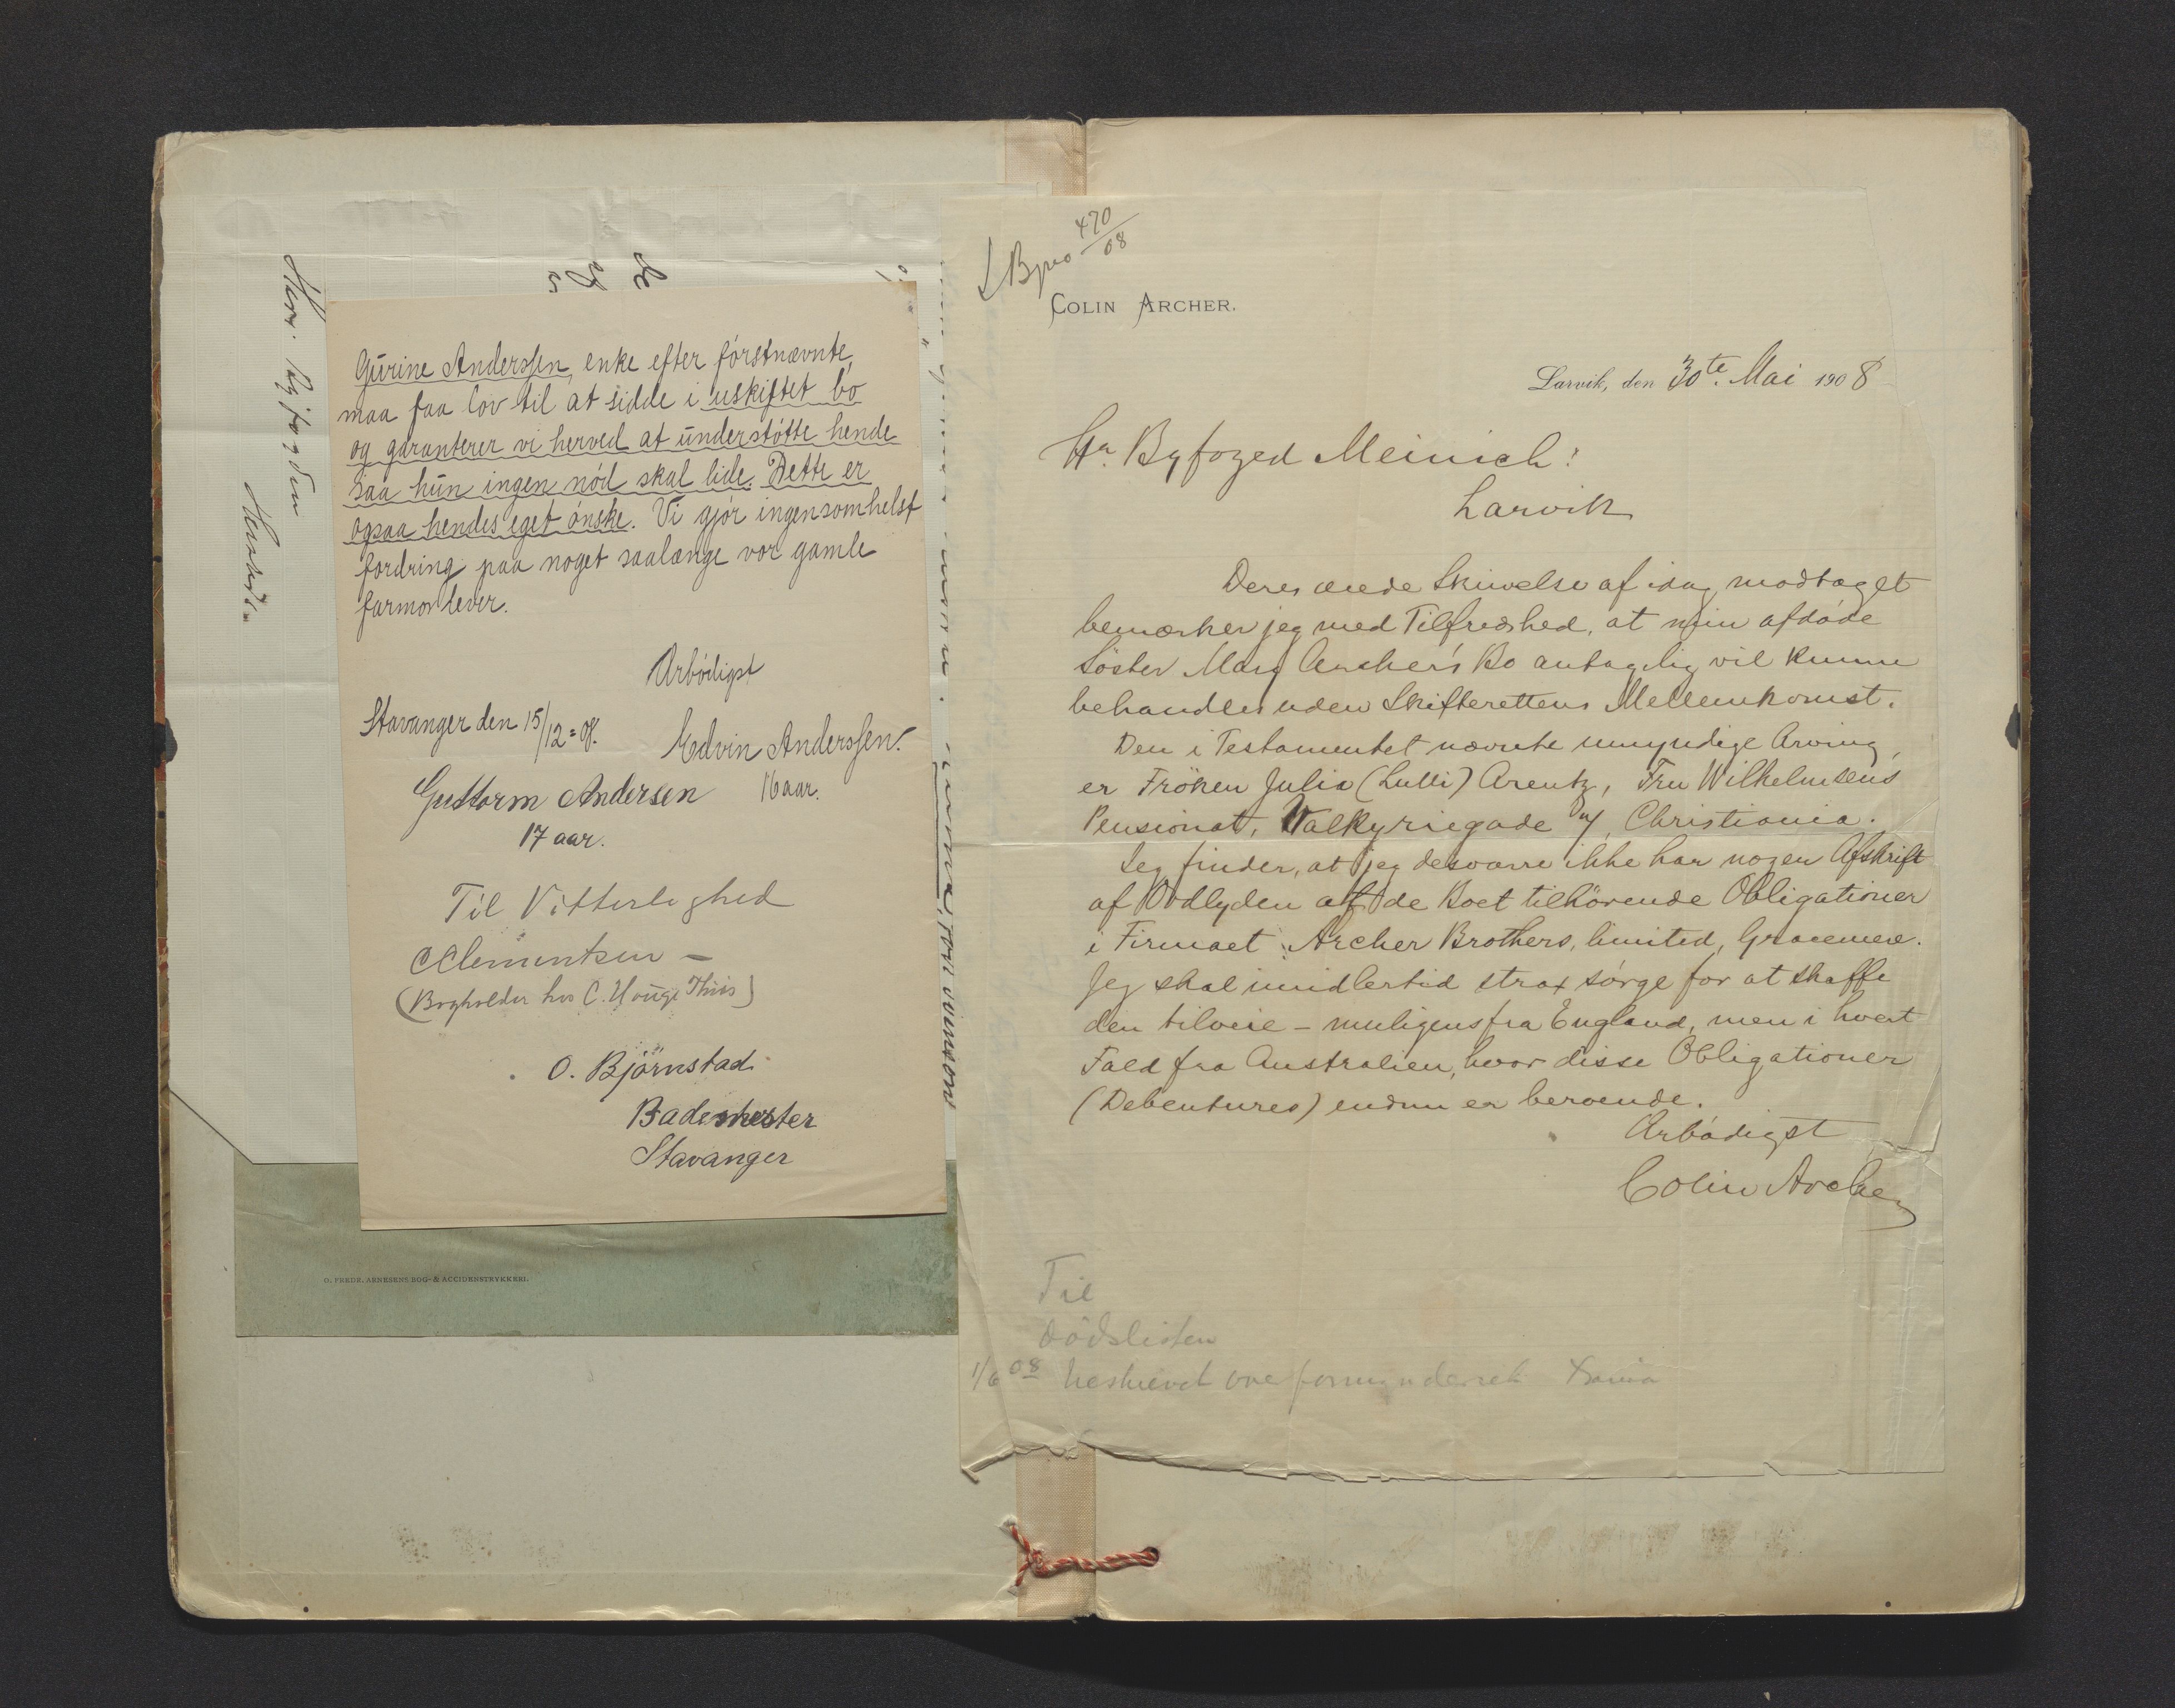 Gurine Anderssen, enke efter förstnævnte,
maa faa lov til at sidde i uskiftet bo
og garanterer vi herved at understötte hende
saa hun ingen nöd skal lide. Dette er
ogsaa hendes eget önske. Vi gjör ingensomhelst
fordring paa noget saalænge vor gamle
farmor lever.
Ærbödigst
Stavanger den 15/12=08.
Edvin Anderssen.
16 aar.
Guttorm Andersen
17 aar.
Til Vitterlighed
C Clementsen –
(Bogholder hos C. Houge Thiis)
O. Björnstad
Bademester
Stavanger
O. FREDR. ARNESENS BOG- & ACCIDENSTRYKKERI.
Herr. Byfogden
470/08
COLIN ARCHER.
Larvik, den 30te Mai 1908
Hr. Byfoged Meinich!
Larvik
Deres ærede Skrivelse af idag modtaget
bemærker jeg med Tilfredshed, at min afdöde
Söster Mary Archer's Bo antagelig vil kunne
behandles uden Skifterettens Mellemkomst.
Den i Testamentet nævnte umyndige Arving,
er Fröken Julia (Lulli) Arentz, Fru Wilhelmsens
Pensionat, Valkyriegade, Christiania.
Jeg finder, at jeg desværre ikke har nogen Afskrift
af Ordlyden af de Boet tilhörende Obligationer
i Firmaet: Archer Brothers, limited, Gracemere.
Jeg skal imidlertid strax sörge for at skaffe
den tilveie – muligens fra England, men i hvert
Fald fra Australien, hvor disse Obligationer
(Debentures) endnu er beroende.
Ærbödigst
Colin Archer
Til
dödslisten
1/6 08 beskrevet overformynderiet Xania